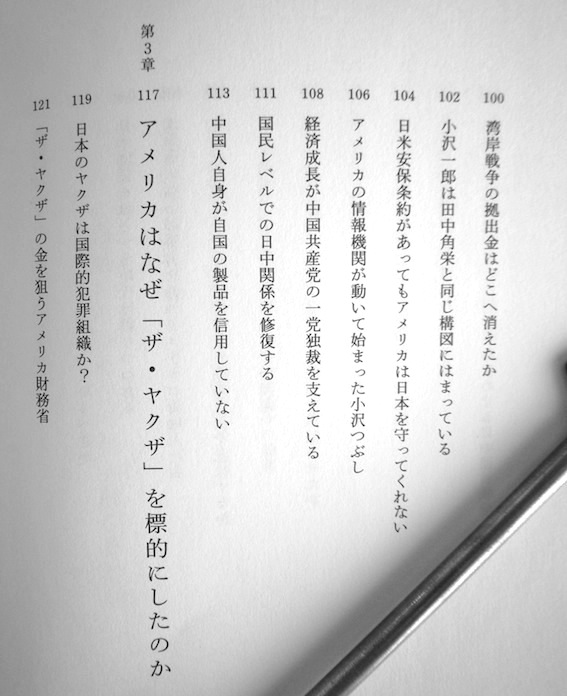 100 湾岸戦争の拠出金はどこへ消えたか
102 小沢一郎は田中角栄と同じ構図にはまっている
104 日米安保条約があってもアメリカは日本を守ってくれない
106 アメリカの情報機関が動いて始まった小沢つぶし
108 経済成長が中国共産党の一党独裁を支えている
111 国民レベルでの日中関係を修復する
113 中国人自身が自国の製品を信用していない
第3章 117 アメリカはなぜ「ザ・ヤクザ」を標的にしたのか
119 日本のヤクザは国際的犯罪組織か?
121 「ザ・ヤクザ」の金を狙うアメリカ財務省